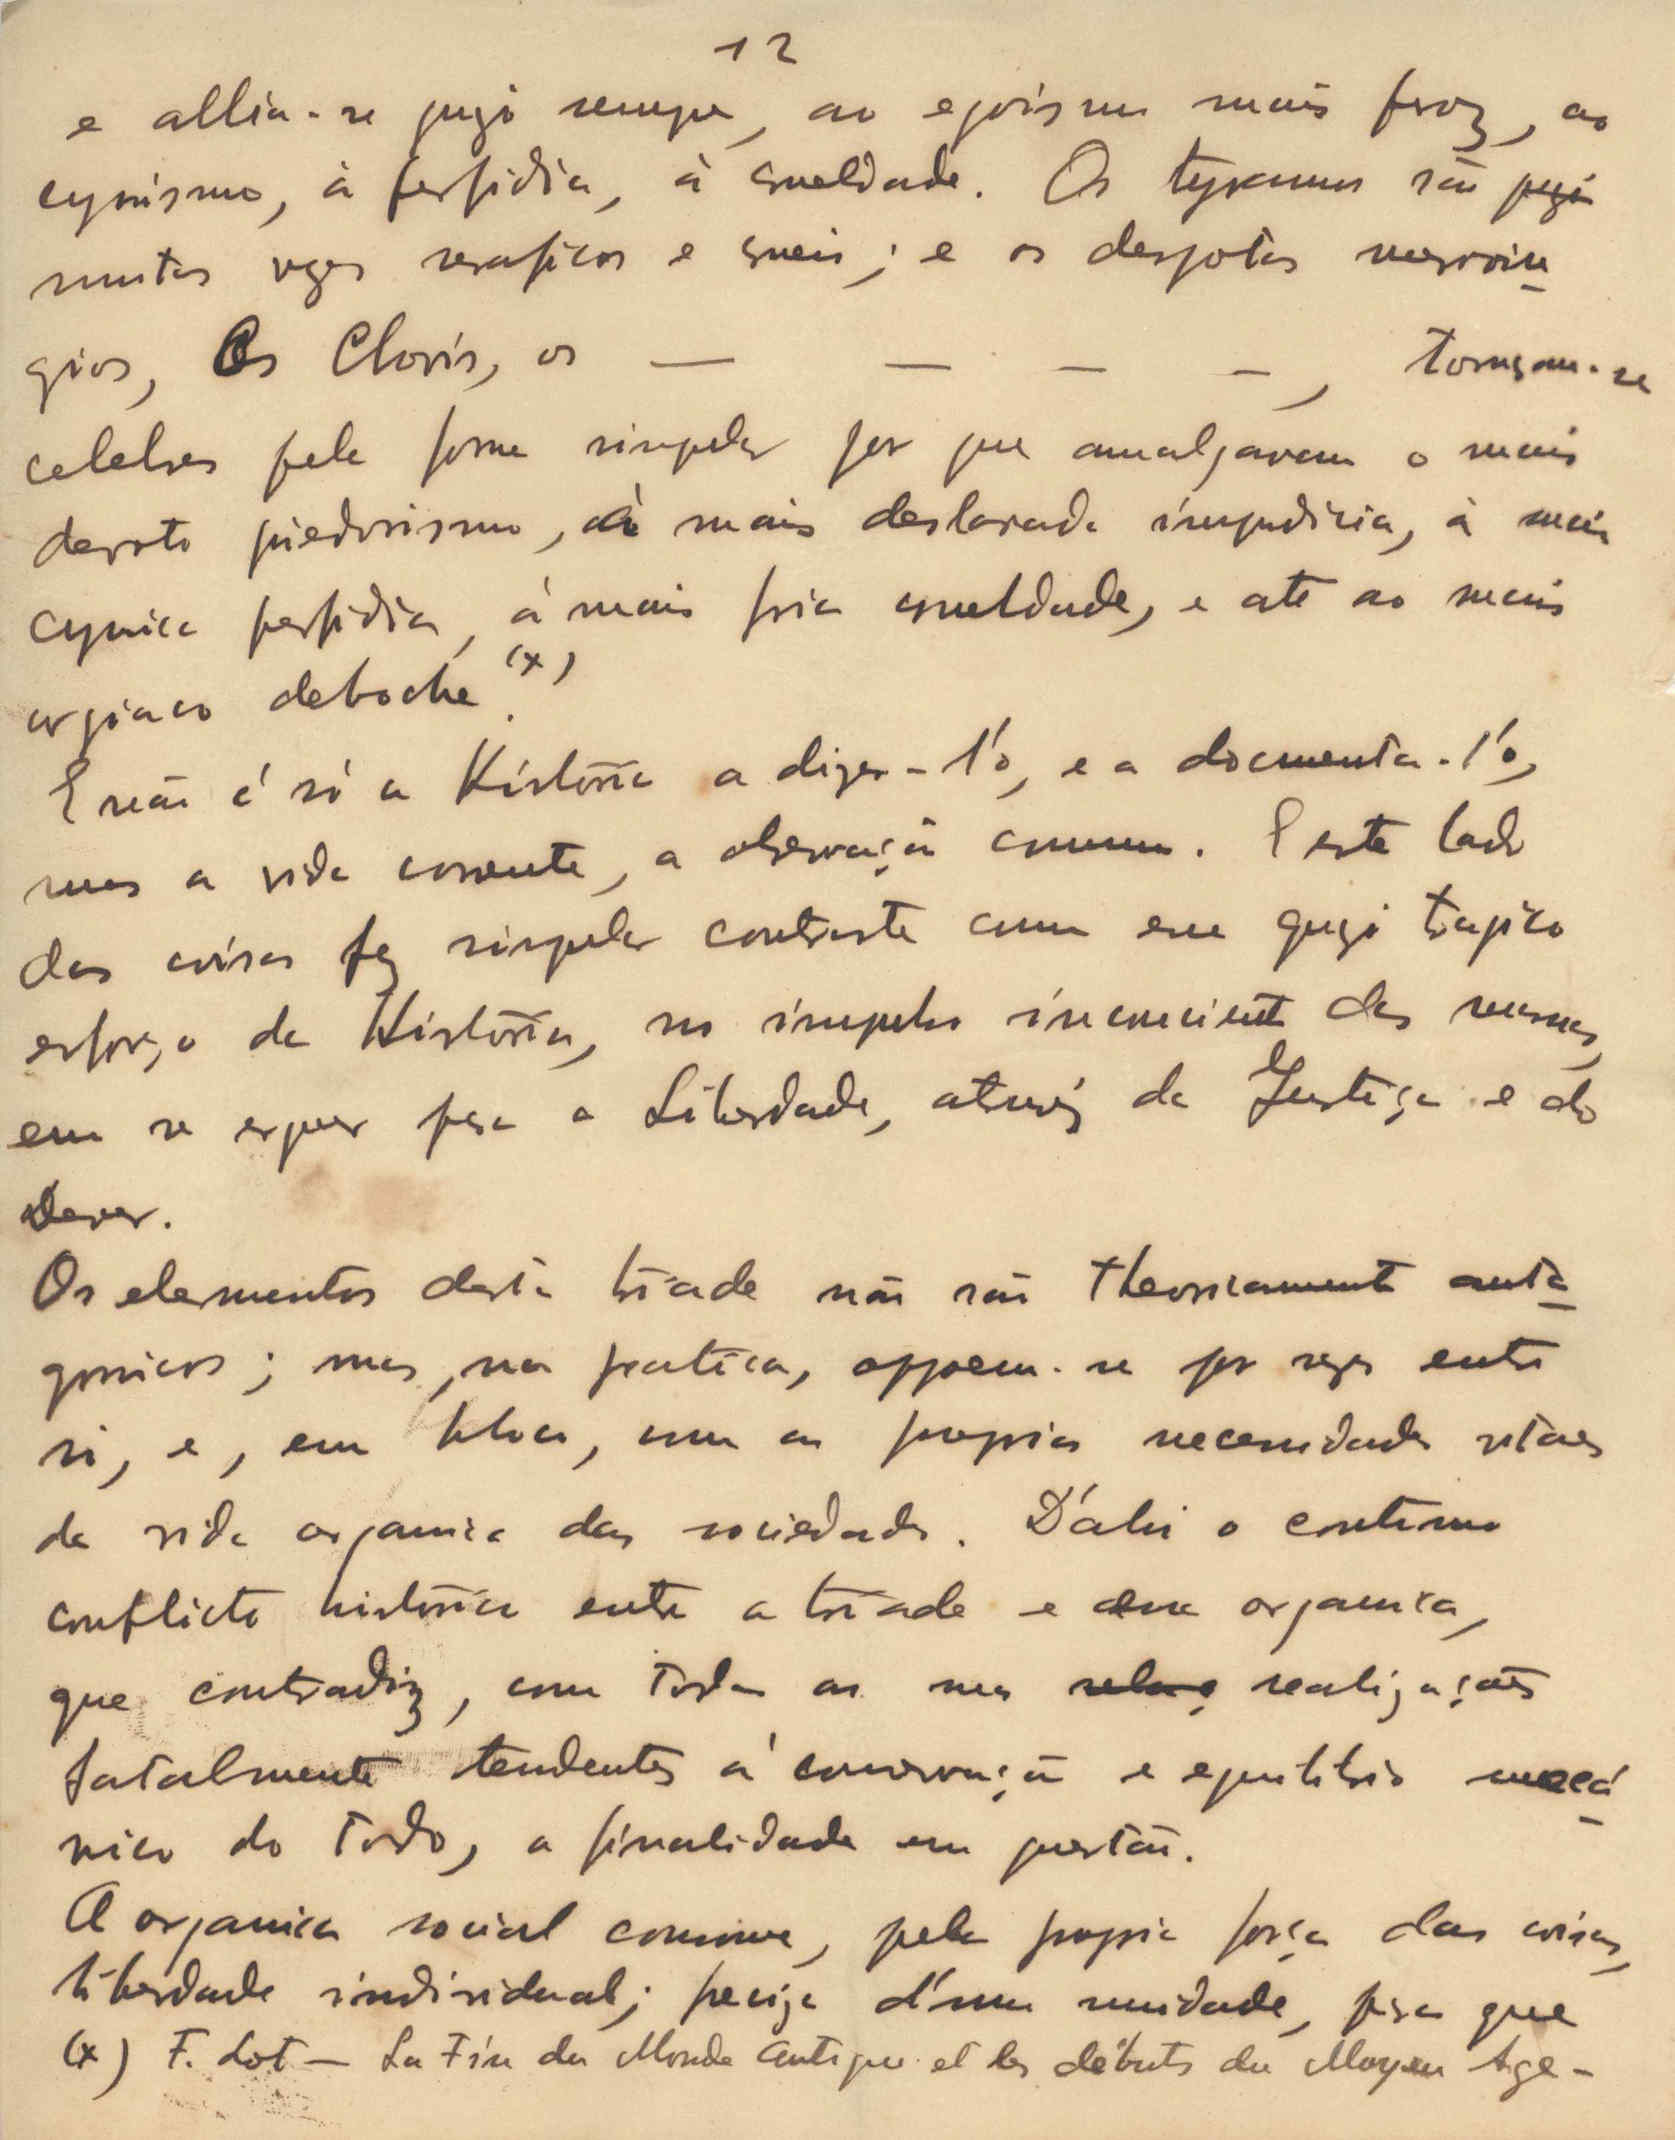 12
e allia-se quazi sempre, ao egoismo mais feroz, ao
cynismo, à perfidia, à crueldade. Os tyrannos são quazi
muitas vezes seraficos e crueis; e os despotas merovin
gios, Os Clovis, os — — — —, tornaram-se
celebres pela forma singular por que amalgavam o mais
devoto piedosismo, à mais deslavada impudicia, à mais
cynica perfidia, à mais fria crueldade, e até ao mais
orgiaco deboche (x).
E não é só a História a dizer-l'o, e a documenta-l'o,
mas a vida corrente, a observação commum. E este lado
das coisas faz singular contraste com esse quazi tragico
esforço da História, no impulso inconciente das massas,
em se erguer para a Liberdade, atravéz da Justiça e do
Dever.
Os elementos desta triade não são theoricamente anta
gonicos; mas, na pratica, oppoem-se por vezes entre
si, e, em bloco, com as proprias necessidades vitaes
da vida organica das sociedades. D'ahi o continuo
conflicto histórico entre a triade e essa organica,
que contradiz, com todas as suas realizações
fatalmente tendentes á conservação e equilibrio mecâ
nico do todo, a finalidade em questão.
A organica social consome, pela propria força das coisas,
liberdade individual; preciza d'uma unidade, para que
(x) F. Lot — La Fin du Monde antique et les débuts du Moyen Age —